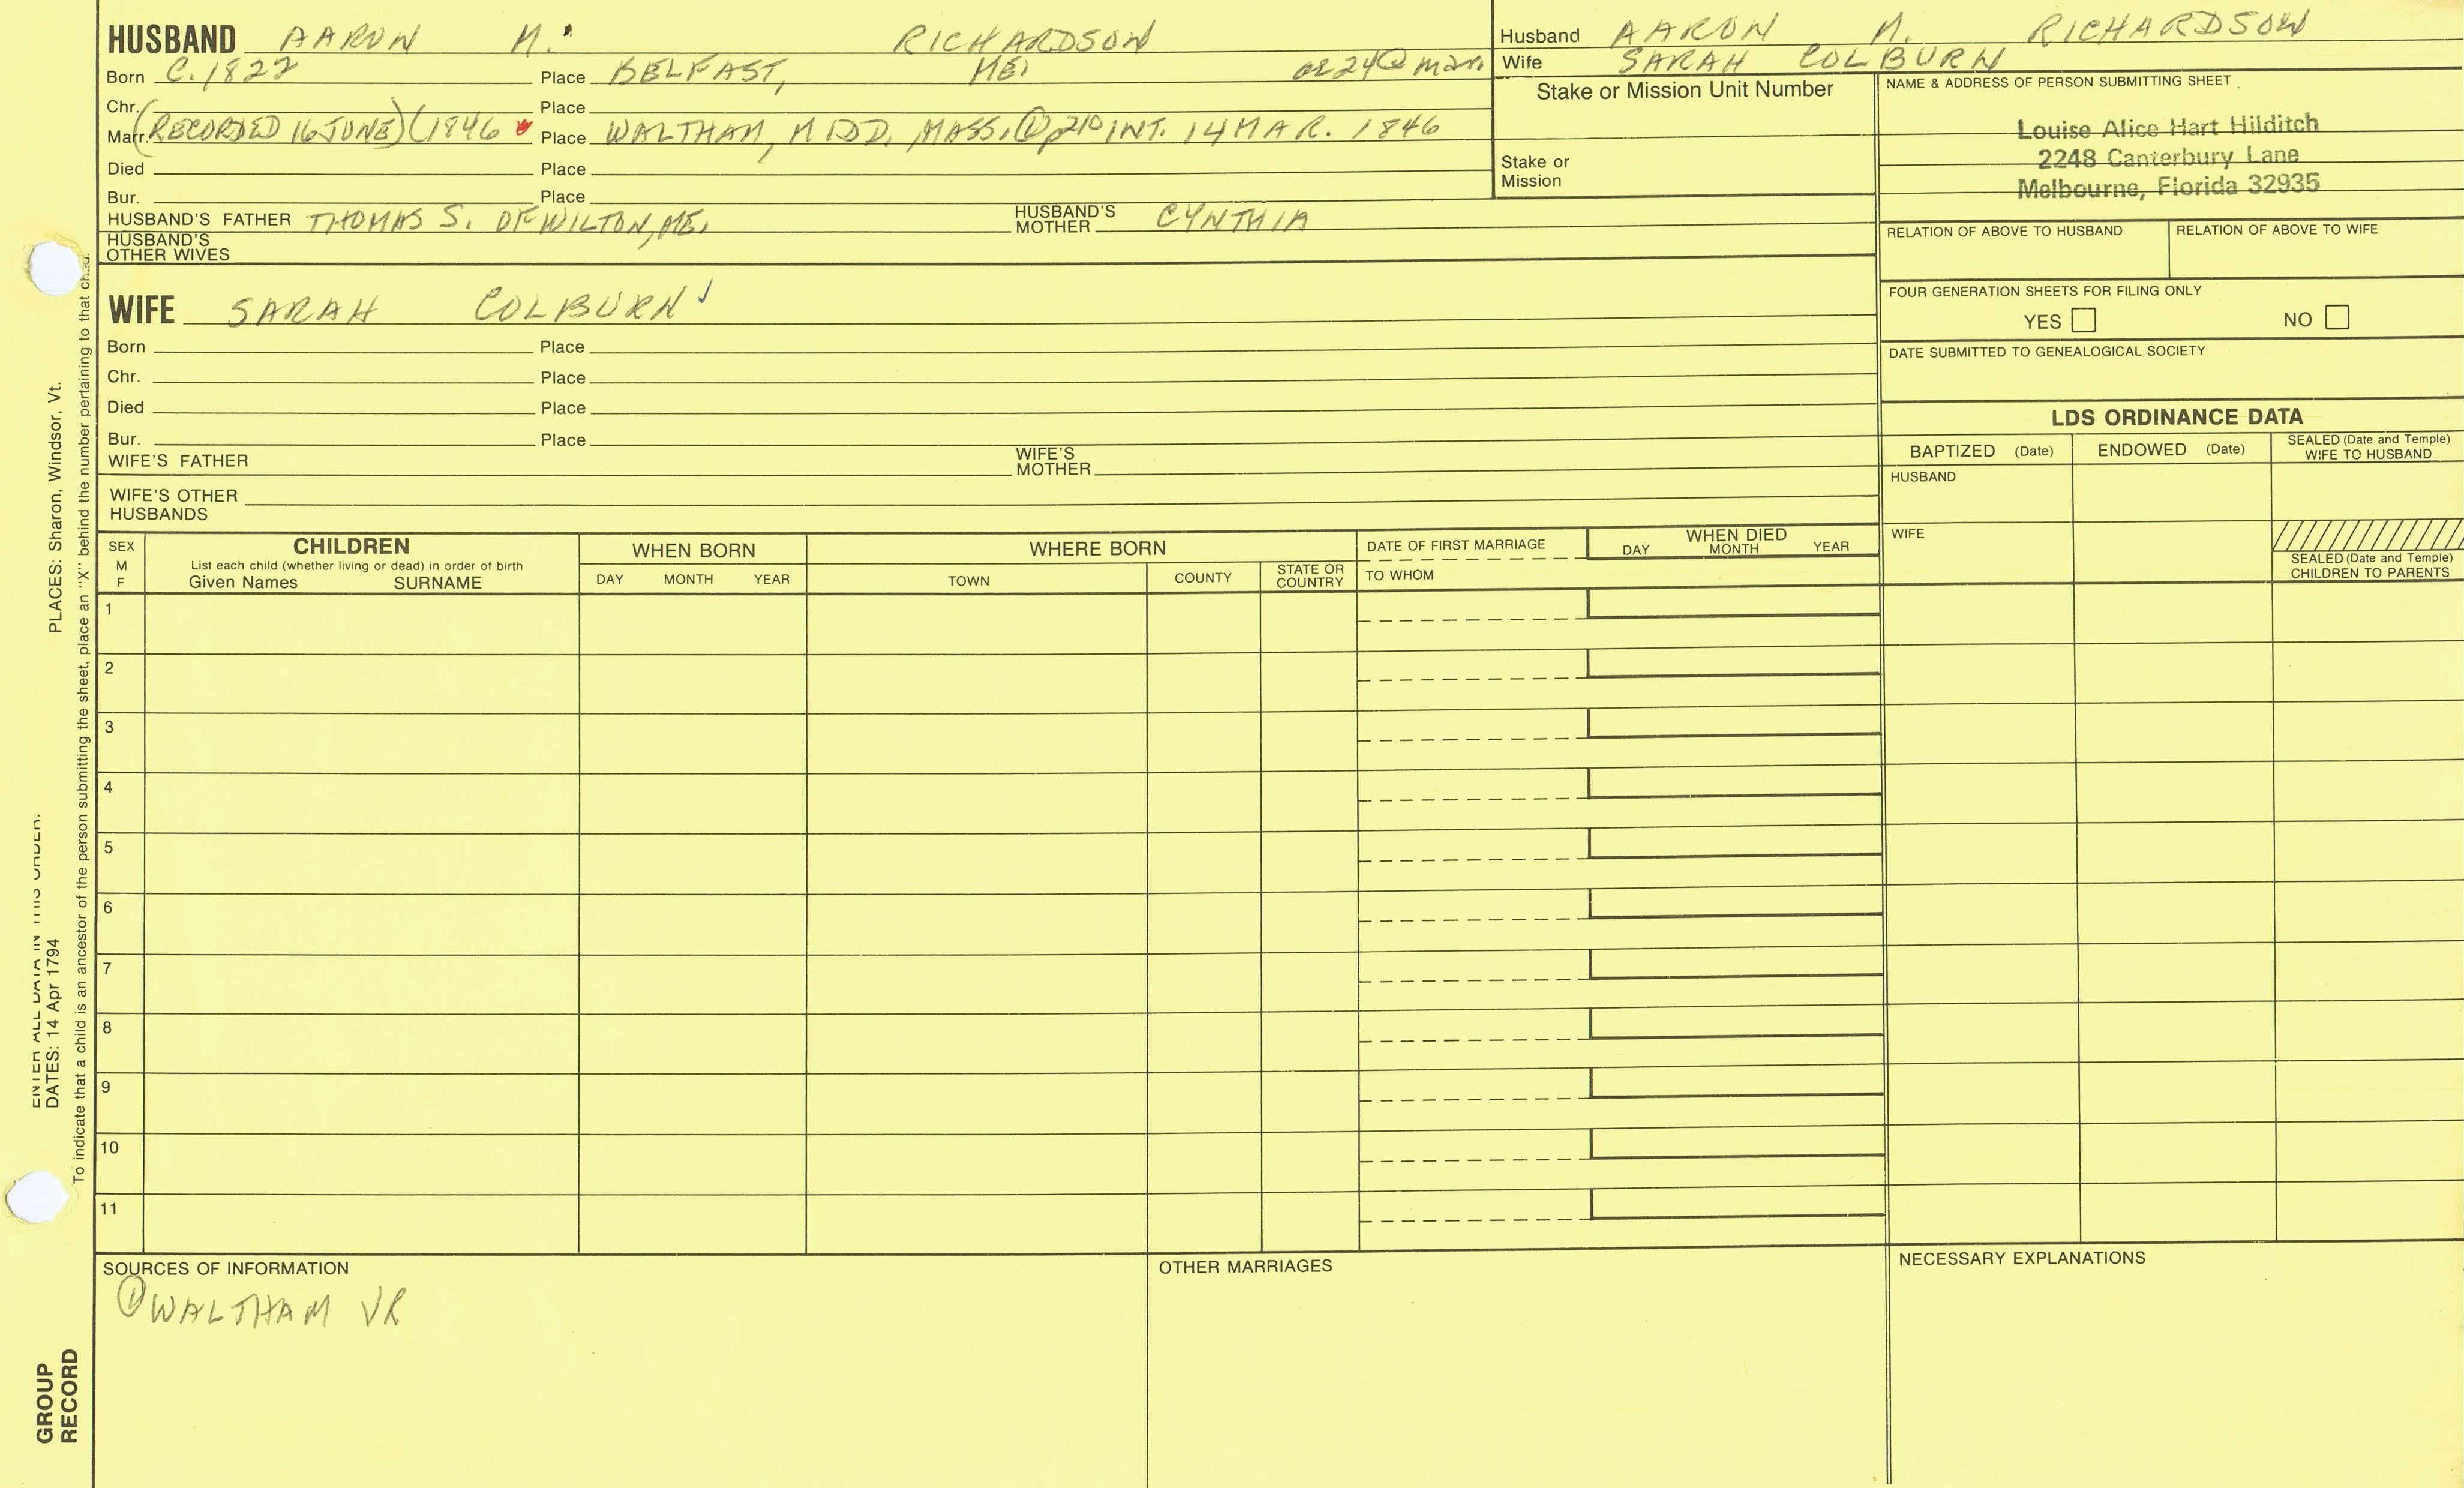 HUSBAND AARON M. RICHARDSON
Born C. 1822 Place BELFAST, ME. ae 24 @ mar.
Chr. Place
Marr. (RECORDED 16 JUNE) (1846 Place WALTHAM, MIDD, MASS. ① p210 INT. 14 MAR. 1846
Died Place
Bur. Place
HUSBAND'S FATHER THOMAS S. OF WILTON, ME. HUSBAND'S MOTHER CYNTHIA
HUSBAND'S OTHER WIVES
Husband AARON M. RICHARDSON
Wife SARAH COLBURN
Stake or Mission Unit Number
Stake or Mission
NAME & ADDRESS OF PERSON SUBMITTING SHEET
Louise Alice Hart Hilditch
2248 Canterbury Lane
Melbourne, Florida 32935
RELATION OF ABOVE TO HUSBAND RELATION OF ABOVE TO WIFE
FOUR GENERATION SHEETS FOR FILING ONLY
YES NO
DATE SUBMITTED TO GENEALOGICAL SOCIETY
WIFE SARAH COLBURN
Born Place
Chr. Place
Died Place
Bur. Place
WIFE'S FATHER WIFE'S MOTHER
WIFE'S OTHER HUSBANDS
LDS ORDINANCE DATA
BAPTIZED (Date) ENDOWED (Date) SEALED (Date and Temple) WIFE TO HUSBAND
HUSBAND
WIFE
SEALED (Date and Temple) CHILDREN TO PARENTS
SEX M F
CHILDREN
List each child (whether living or dead) in order of birth
Given Names SURNAME
WHEN BORN
DAY MONTH YEAR
WHERE BORN
TOWN COUNTY STATE OR COUNTRY
DATE OF FIRST MARRIAGE
TO WHOM
WHEN DIED
DAY MONTH YEAR
1
2
3
4
5
6
7
8
9
10
11
SOURCES OF INFORMATION
① WALTHAM VR
OTHER MARRIAGES
NECESSARY EXPLANATIONS
ENTER ALL DATA IN THIS ORDER:
DATES: 14 Apr 1794 PLACES: Sharon, Windsor, Vt.
To indicate that a child is an ancestor of the person submitting the sheet, place an "X" behind the number pertaining to that child.
GROUP
RECORD